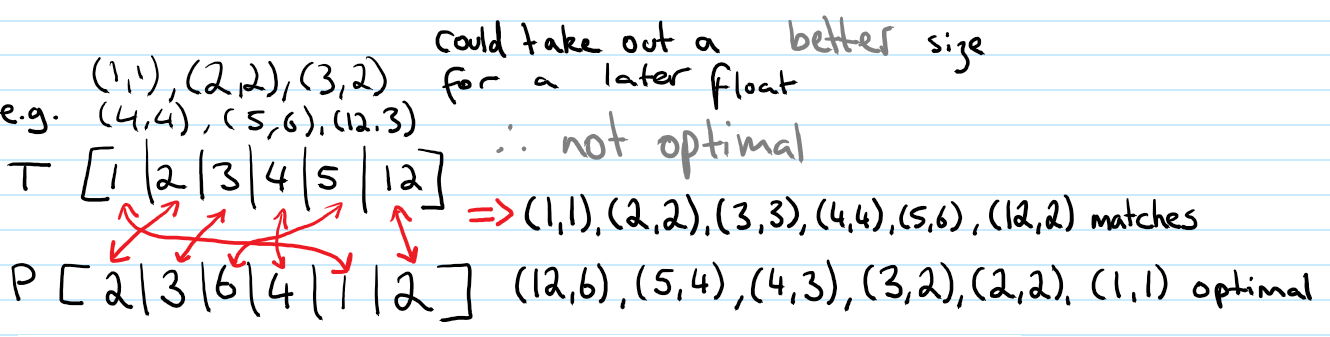 could take out a better size
(1,1), (2,2), (3,2) for a later float
e.g. (4,4), (5,6), (12.3)
∴ not optimal
T [1|2|3|4|5|12]
=> (1,1), (2,2), (3,3), (4,4), (5,6), (12,2) matches
P [2|3|6|4|1|2] (12,6), (5,4), (4,3), (3,2), (2,2), (1,1) optimal